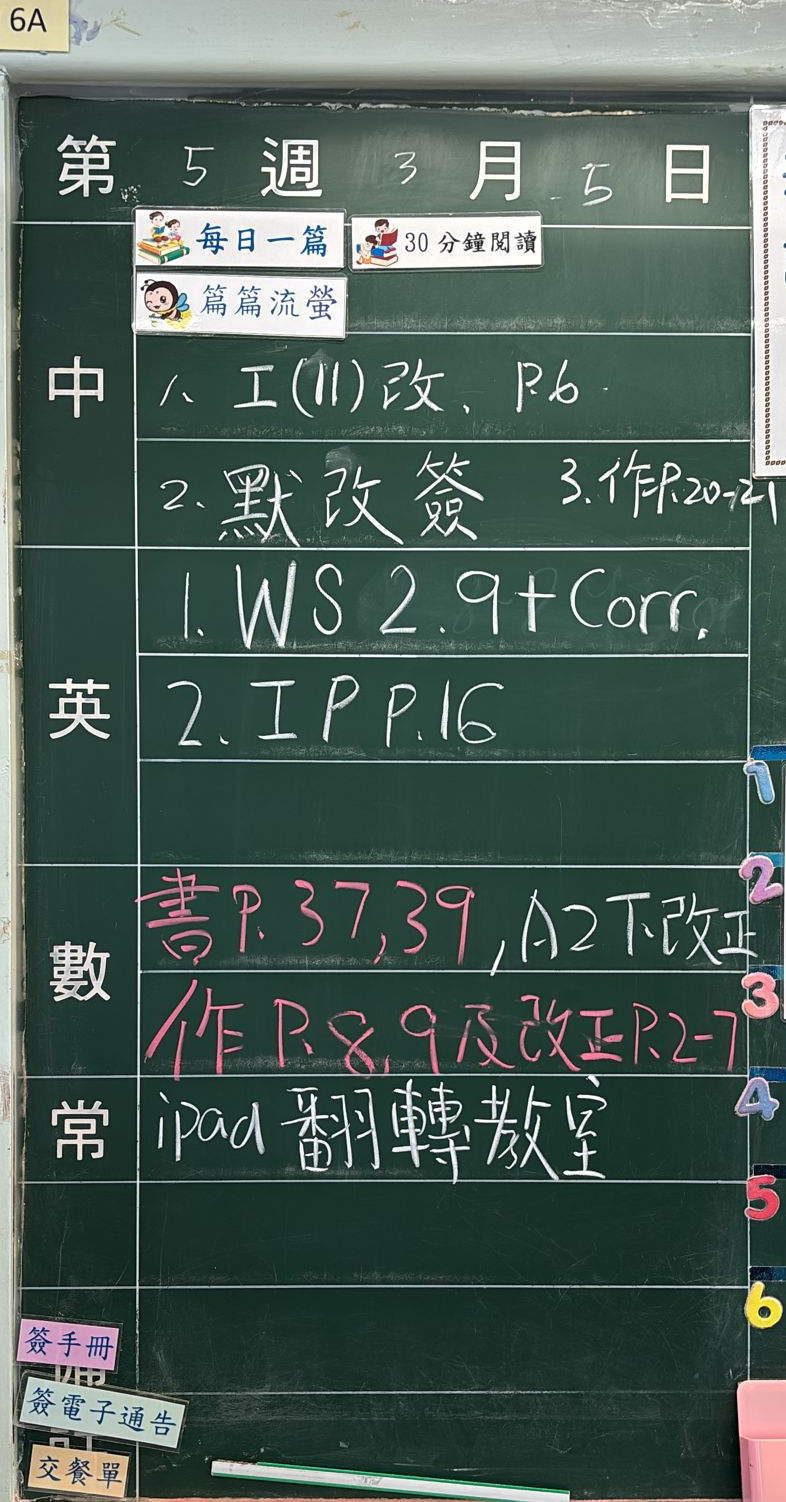 6A
第 5 週 3 月 5 日
每日一篇 30分鐘閱讀
篇篇流螢
中
1. 工(11)改、P.6
2. 默改簽 3.作P.20-21
英
1. WS 2.9+Corr.
2. IP P.16
數
書P.37,39,A2下改正
作P.8,9及改正P.2-7
常
ipad翻轉教室
簽手冊
簽電子通告
交餐單
1
2
3
4
5
6